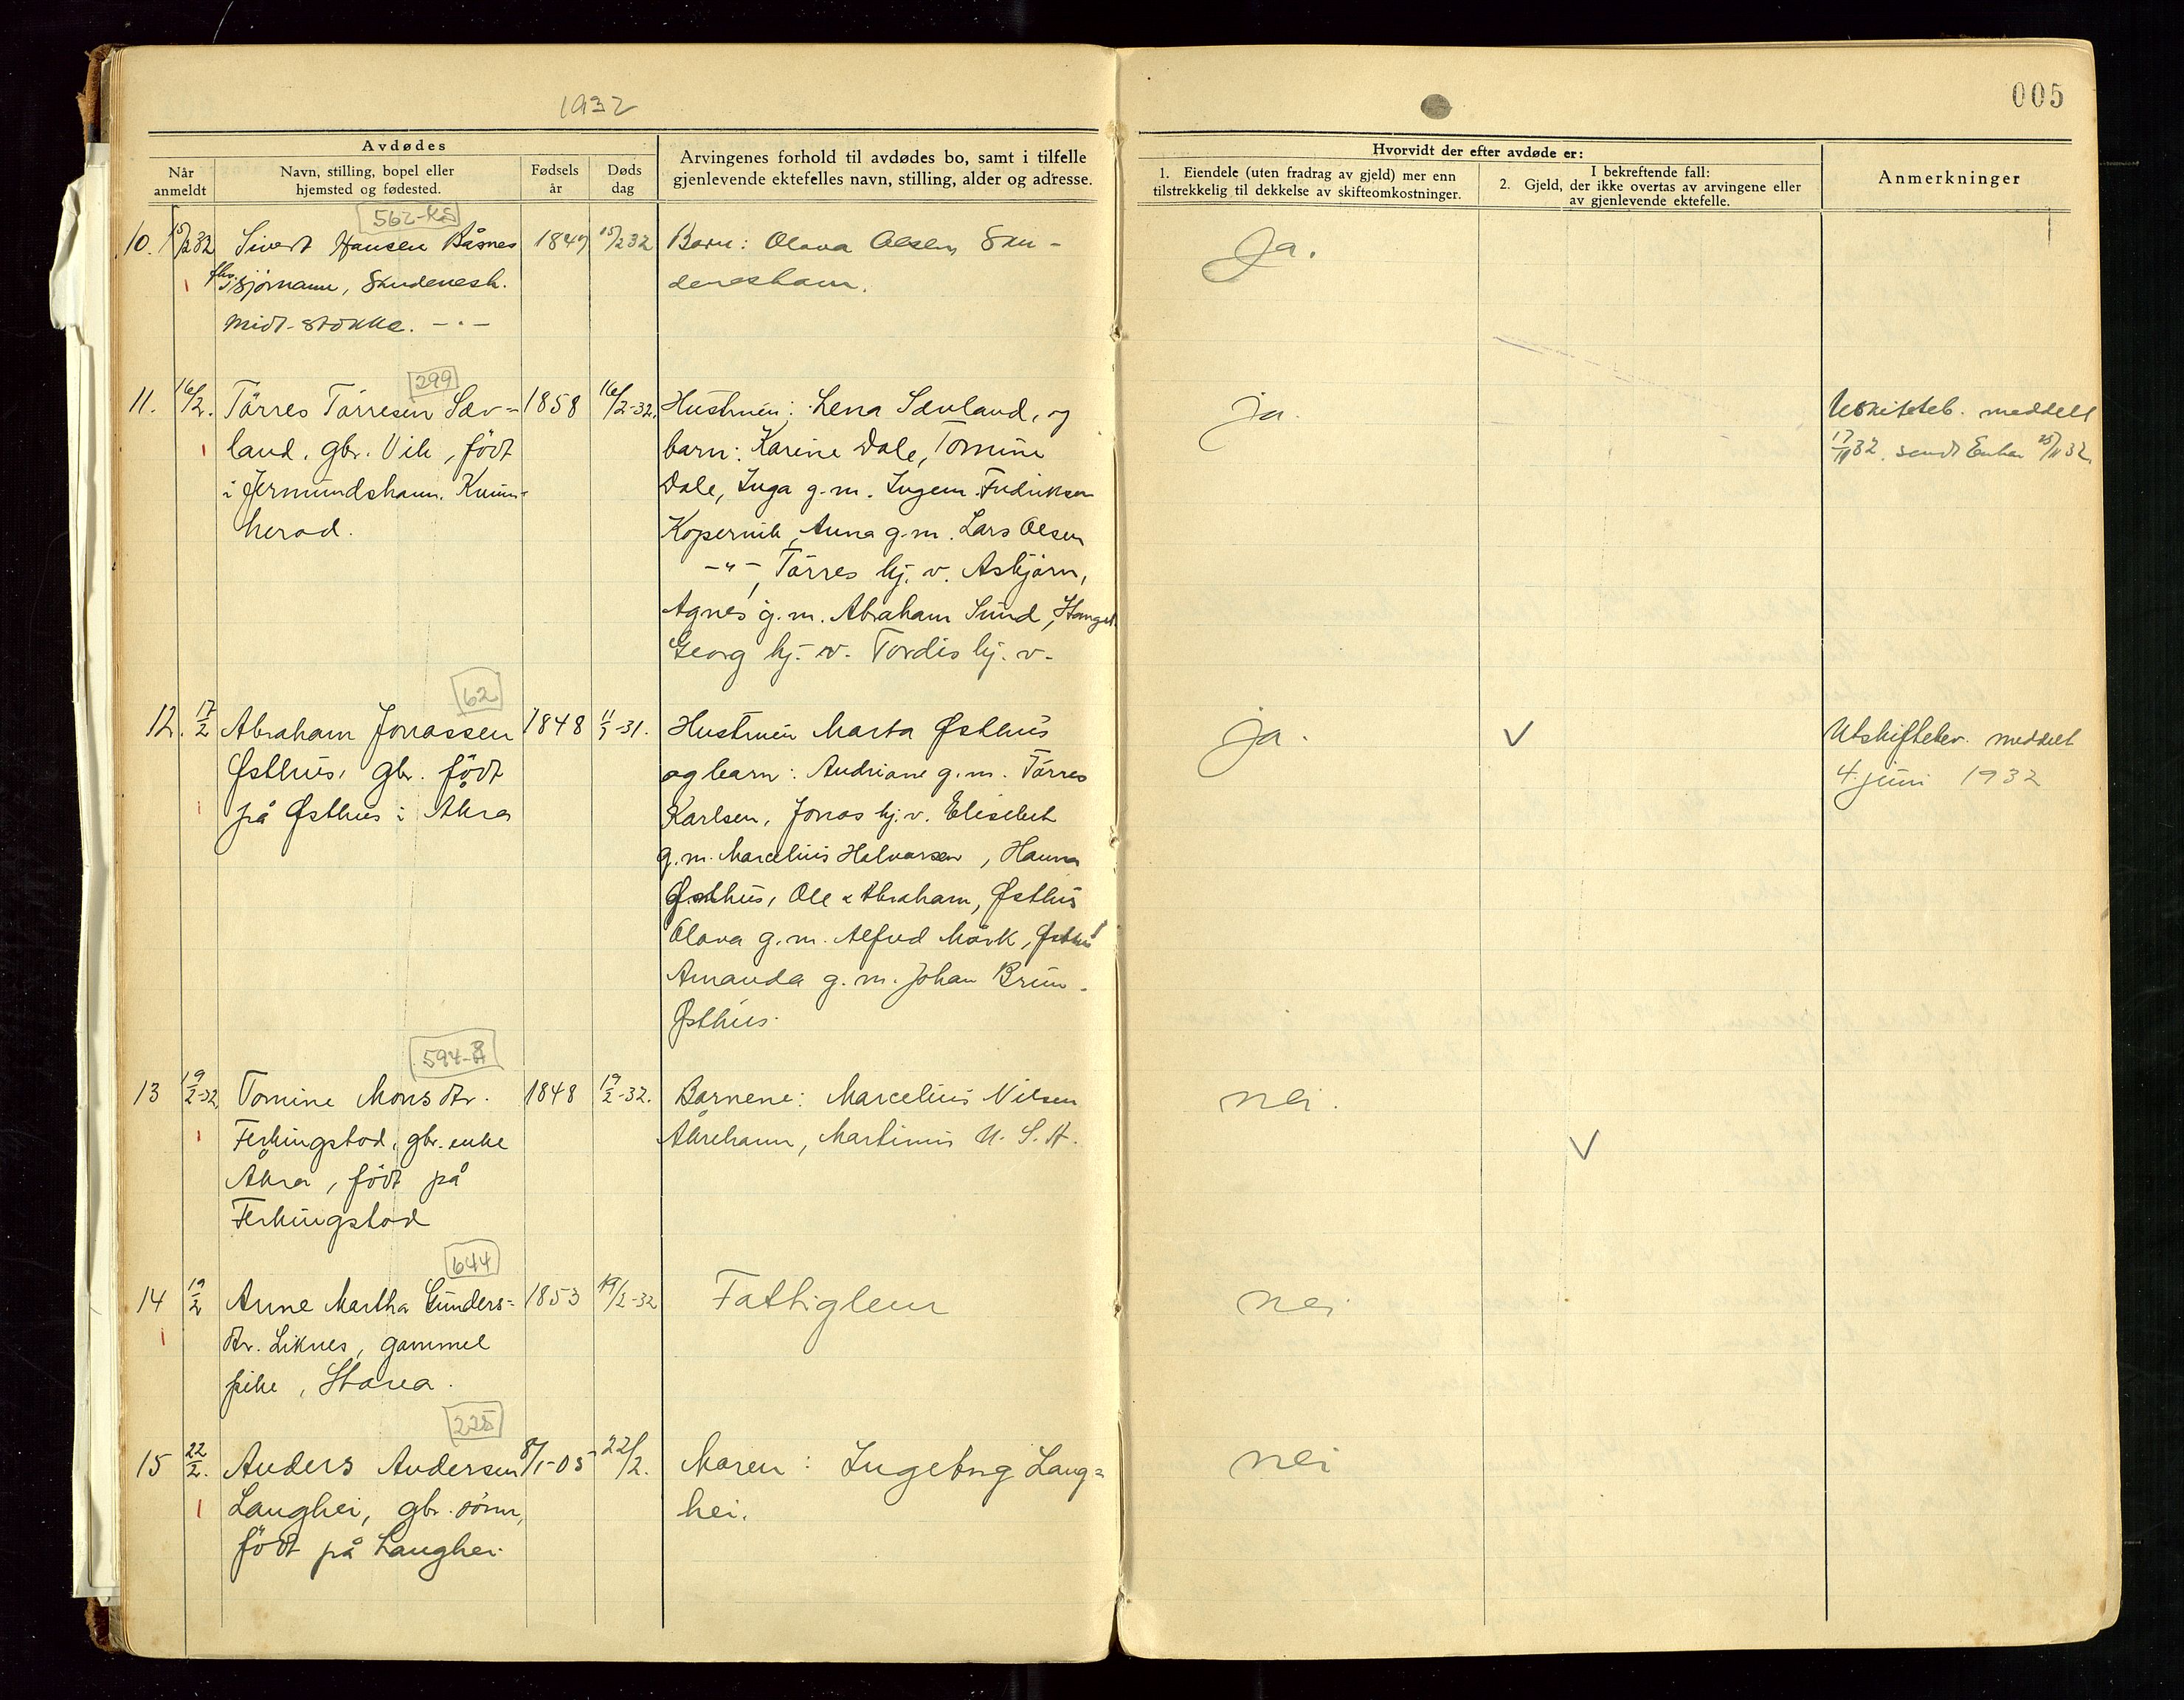 1932
005
Avdødes
Når anmeldt
Navn, stilling, bopel eller hjemsted og fødested.
Fødsels år
Døds dag
Arvingenes forhold til avdødes bo, samt i tilfelle
gjenlevende ektefelles navn, stilling, alder og adresse.
Hvorvidt der efter avdøde er:
1. Eiendele (uten fradrag av gjeld) mer enn
tilstrekkelig til dekkelse av skifteomkostninger.
I bekreftende fall:
2. Gjeld, der ikke overtas av arvingene eller
av gjenlevende ektefelle.
Anmerkninger
562-
10. 15/2 32 Sivert Hansen Båsnes 1847 15/2 32 Barn: Olava Olsen, Sku- Ja.
fhv. sjömann, Skudenesh. deneshavn.
Midt-Stokke. - " -
299
11. 16/2. Törres Törresen Sæv- 1858 16/2-32. Hustruen: Lena Sævland, og ja. Uskifteb. meddelt
land. gbr. Vik, födt barn: Karine Dale, Tomine 17/11 32. sendt Enken 25/11 32.
i Jermundshavn. Kvinn- Dale, Inga g.m. Ingem. Fredriksen
herad. Kopervik, Anna g.m. Lars Olsen
- " -, Törres hj. v. Asbjörn,
Agnes g.m. Abraham Sund,
Georg hj. v. Tordis hj. v.
62
12. 17/2 Abraham Jonassen 1848 -31. Hustruen Marta Østhus ja. V Utskiftebev. meddelt
Østhus, gbr. födt og barn: Andriane g.m. Törres 4. juni 1932
på Østhus i Åkra Karlsen, Jonas hj. v. Elisebet
g.m. Marcelius Halvorsen, Hanna
Østhus, Ole & Abraham, Østhus
Olava g.m. Alfred Mörk, Østhus
Amanda g.m. Johan Brun-
Østhus.
594-
13 19/2-32 Tomine Monsdtr. 1848 19/2-32. Barnene: Marcelius Nilsen nei.
Ferkingstad, gbr. enke Åkrehavn, Martinus U.S.A. V
Åkra, födt på
Ferkingstad
644
14 19/2 Anne Martha Gunders- 1853 19/2-32 Fattiglem nei
dtr. Liknes, gammel
pike, Stava.
225
15 22/2. Anders Andersen 8/1-05 22/2. Moren: Ingeborg Lang- nei
Langhei, gbr. sönn, hei.
födt på Langhei.